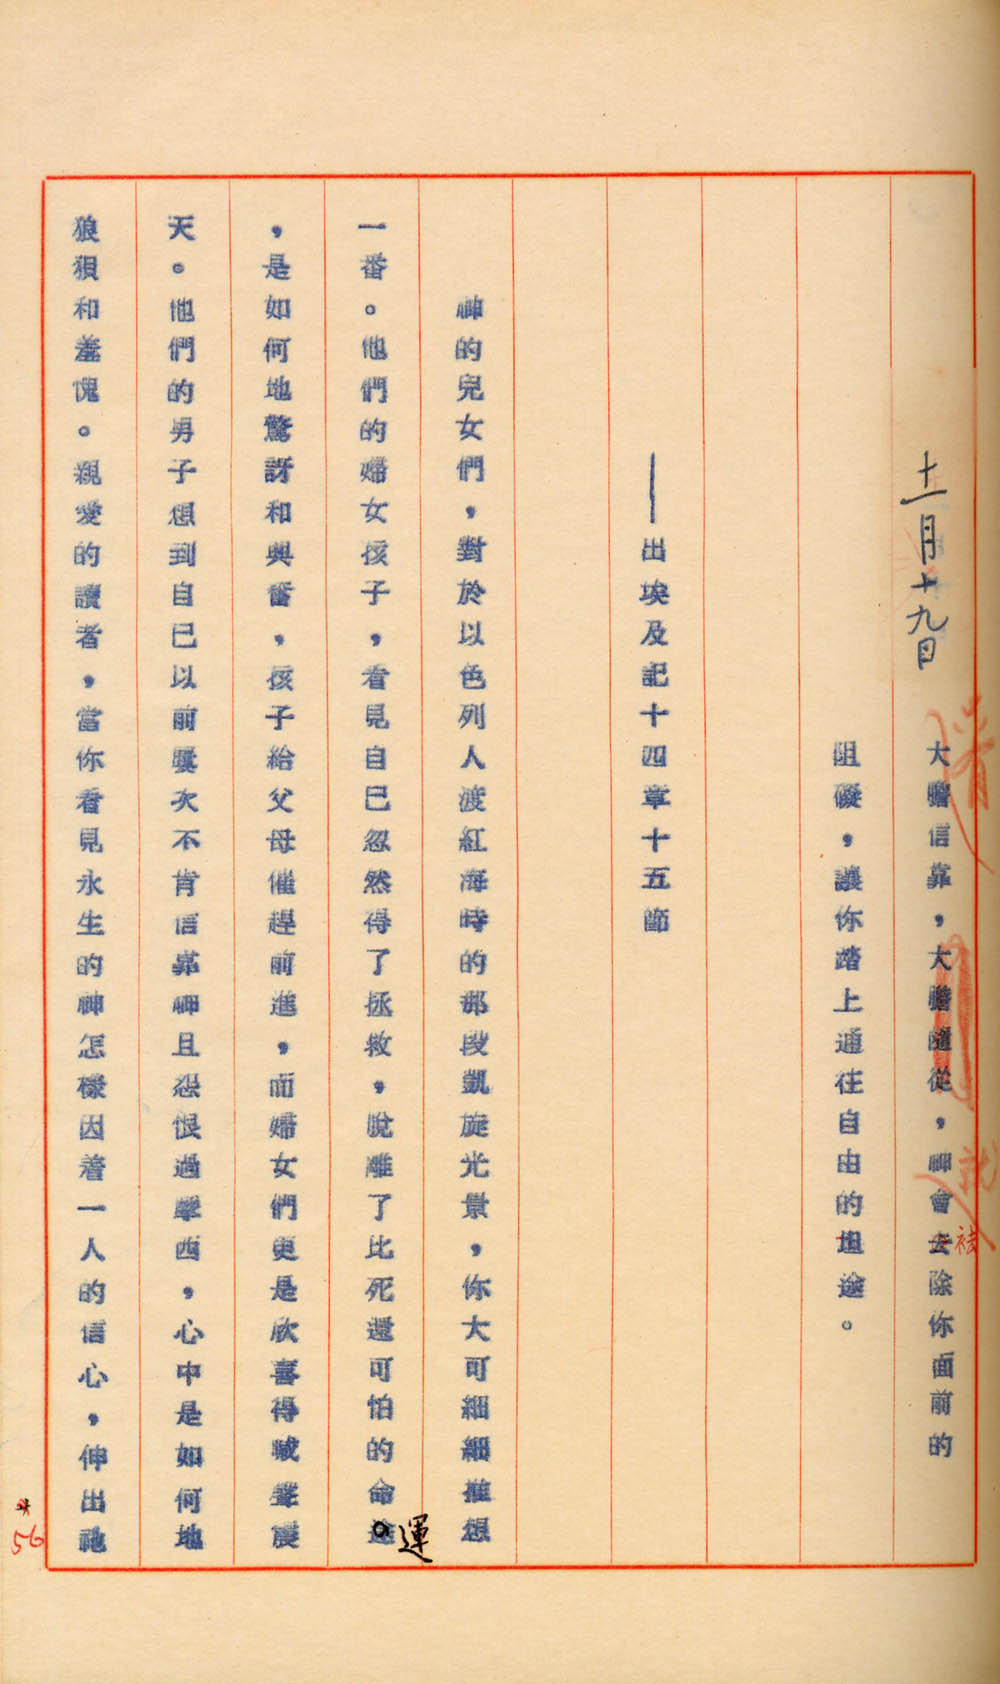 十一月十九日
大膽信靠，大膽隨從，神會去除你面前的
祛
阻礙，讓你踏上通往自由的坦途。
——出埃及記十四章十五節
神的兒女們，對於以色列人渡紅海時的那段凱旋光景，你大可細細推想
一番。他們的婦女孩子，看見自己忽然得了拯救，脫離了比死還可怕的命途。
運
，是如何地驚訝和興奮，孩子給父母催趕前進，而婦女們更是欣喜得喊聲震
天。他們的男子想到自己以前屢次不肯信靠神且怨恨過摩西，心中是如何地
狼狽和羞愧。親愛的讀者，當你看見永生的神怎樣因着一人的信心，伸出祂
56